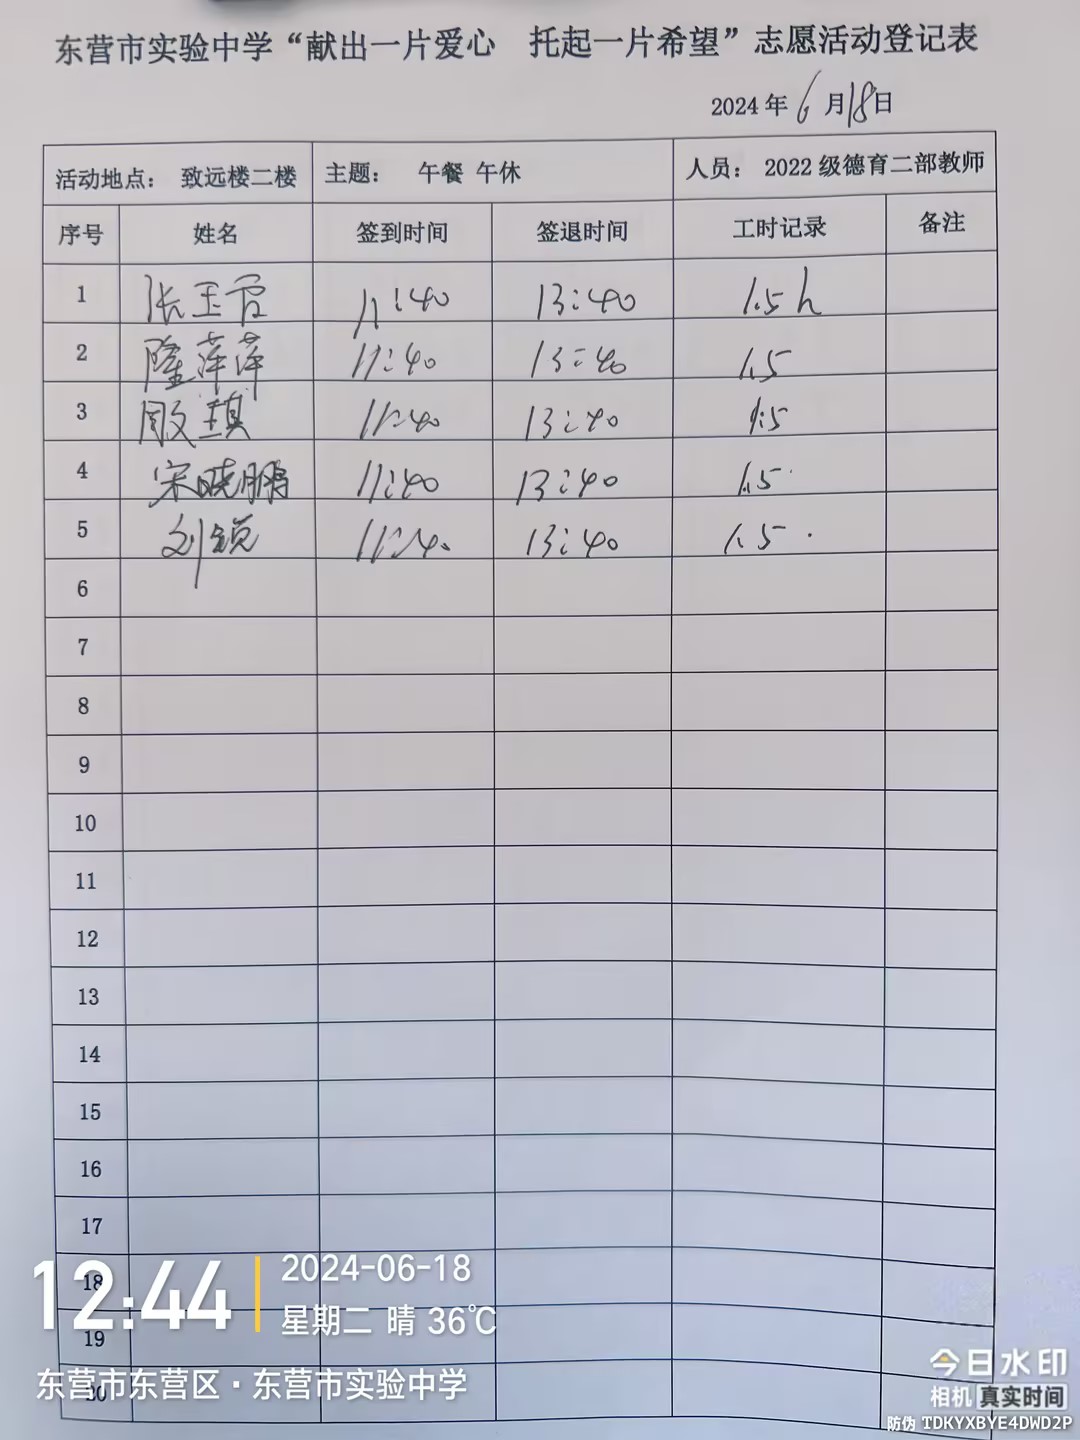 东营市实验中学“献出一片爱心 托起一片希望”志愿活动登记表
2024 年 6 月 18 日
活动地点: 致远楼二楼 主题: 午餐 午休 人员: 2022 级德育二部教师
序号 姓名 签到时间 签退时间 工时记录 备注
1 张玉霞 11:40 13:40 1.5 h
2 隆萍萍 11:40 13:40 1.5
3 殷琪 11:40 13:40 1.5
4 宋晓鹏 11:40 13:40 1.5
5 刘锐 11:40 13:40 1.5
6
7
8
9
10
11
12
13
14
15
16
17
18
19
20
12:44
2024-06-18
星期二 晴 36℃
东营市东营区·东营市实验中学
今日水印
相机 真实时间
防伪 TDKYXBYE4DWD2P